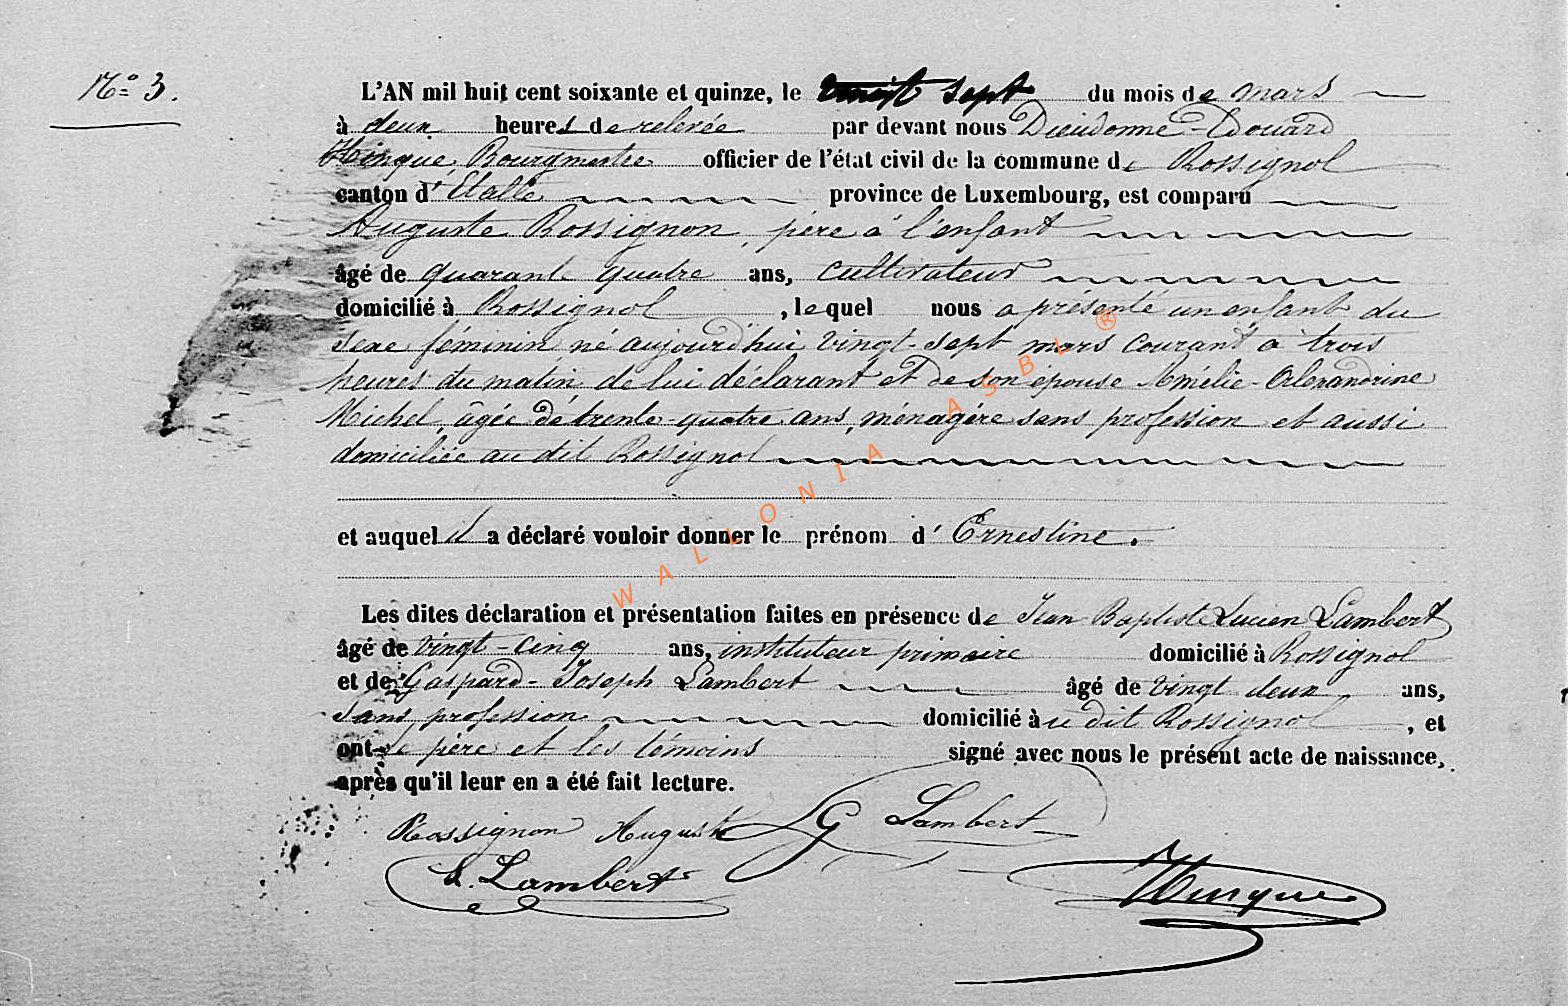 No 3.
L'AN mil huit cent soixante et quinze, le vingt sept du mois de mars
à deux heures de relevée par devant nous Dieudonné-Edouard
Hinque, Bourgmestre officier de l'état civil de la commune de Rossignol
canton d'Etalle province de Luxembourg, est comparu
Auguste Rossignon, père à l'enfant
âgé de quarante quatre ans, cultivateur
domicilié à Rossignol, lequel nous a présenté un enfant du
sexe féminin né aujourd'hui vingt-sept mars courant à trois
heures du matin de lui déclarant et de son épouse Amélie-Alexandrine
Michel, âgée de trente-quatre ans, ménagère sans profession et aussi
domiciliée au dit Rossignol
et auquel il a déclaré vouloir donner le prénom d'Ernestine.
Les dites déclaration et présentation faites en présence de Jean Baptiste Lucien Lambert
âgé de vingt-cinq ans, instituteur primaire domicilié à Rossignol
et de Gaspard-Joseph Lambert âgé de vingt deux ans,
sans profession domicilié à u dit Rossignol, et
ont le père et les témoins signé avec nous le présent acte de naissance,
après qu'il leur en a été fait lecture.
Rossignon Auguste G Lambert
L. Lambert Hinque
WALLONIA ASBL ®